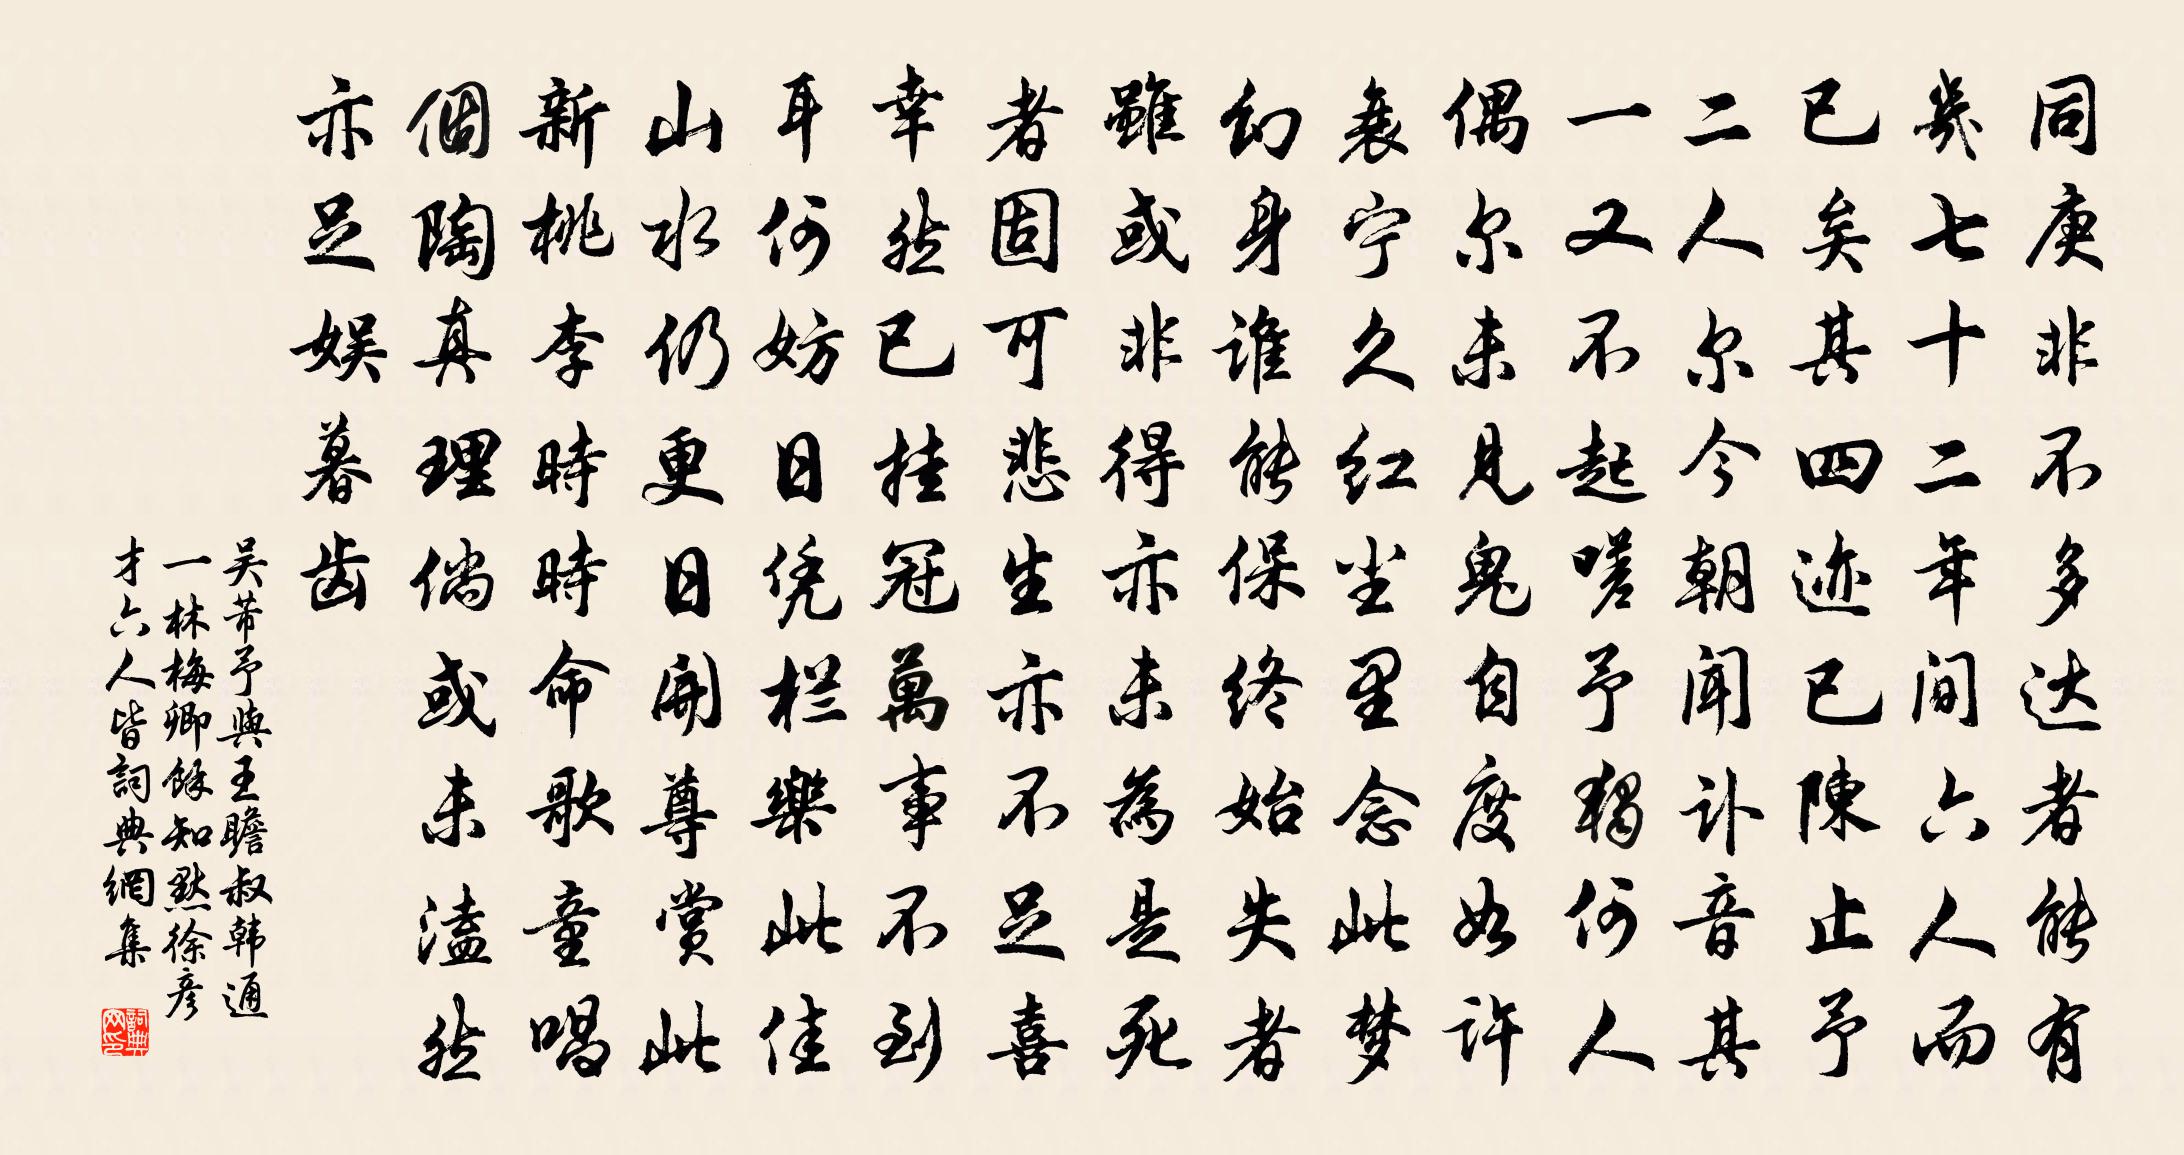 同庚非不多达者能有
幾七十二年间六人而
已矣其四迹已陳止予
二人尔今朝闻讣音其
一又不起嗟予独何人
偶尔未见鬼自度如許
衰宁久红尘里念此梦
幻身谁能保终始失者
雖或非得亦未為是死
者固可悲生亦不足喜
幸然已挂冠萬事不到
耳何妨日凭栏樂此佳
山水仍更日開尊赏此
新桃李時時命歌童唱
個陶真理倘或未溘然
亦足娱暮齿
吴芾予與王瞻叔韩通
一林梅卿餘知默徐彦
才六人皆詞典網集
詞典网印